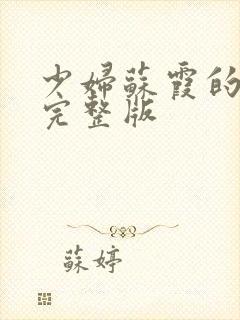 少婦蘇霞的
完整版
蘇婷